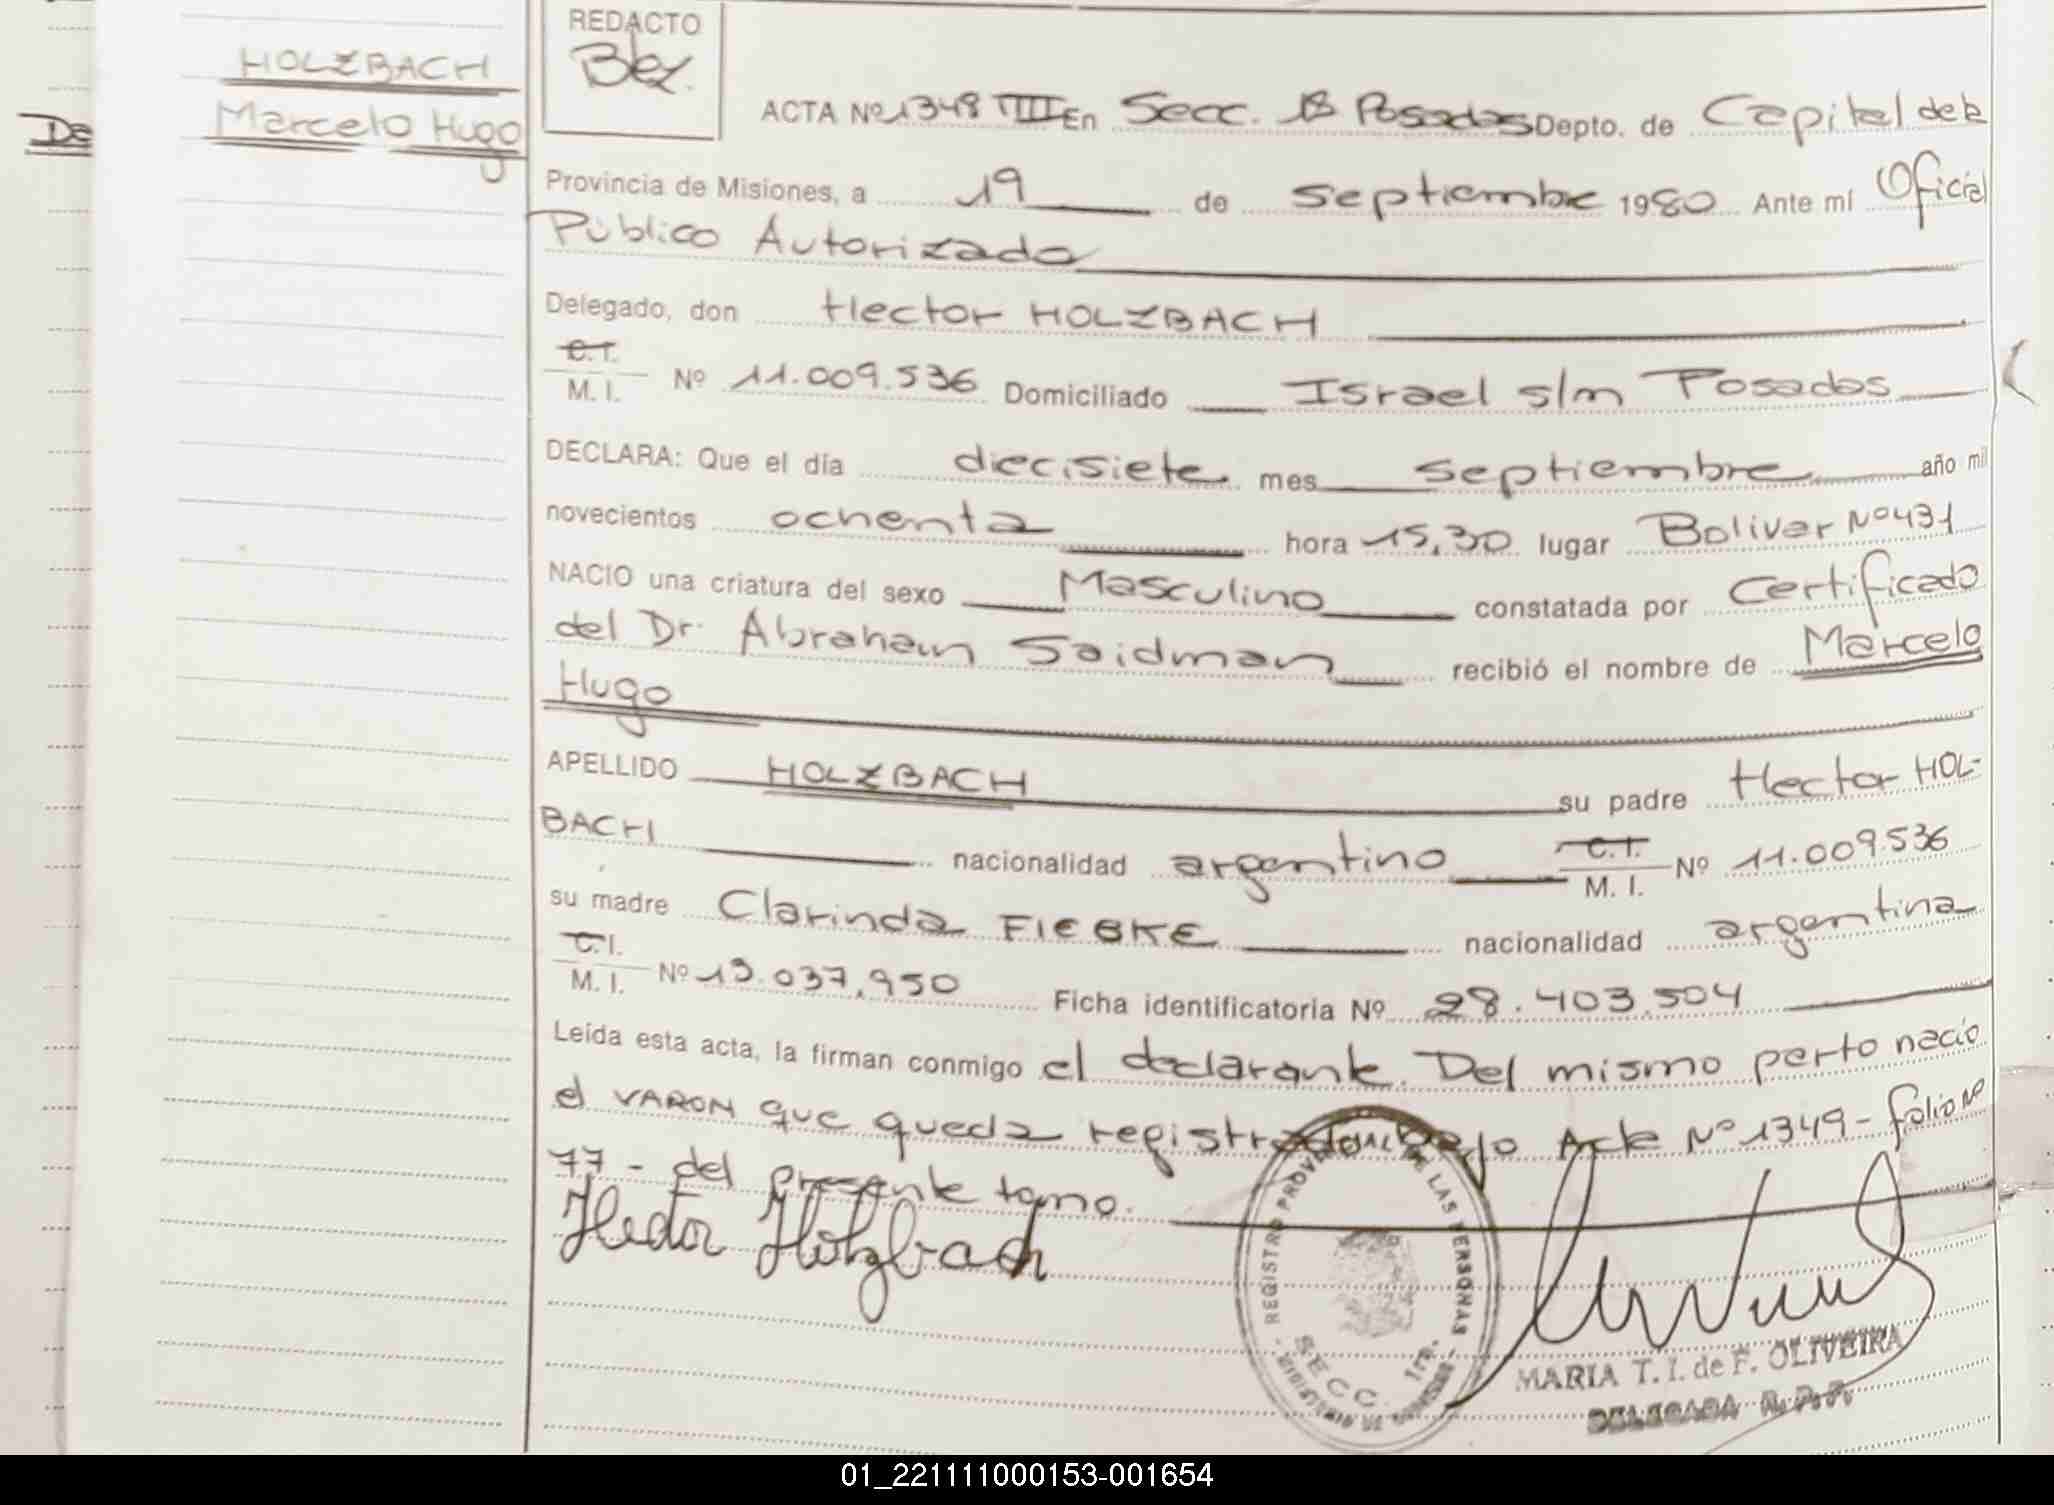 HOLZBACH
Marcelo Hugo
De
REDACTO
Bez.
ACTA Nº 1348 TIII En Secc. 1ª Posadas Depto. de Capital de la
Provincia de Misiones, a 19 de septiembre 1980 Ante mí Oficial
Público Autorizado
Delegado, don Hector HOLZBACH
C.I. M. I. Nº 11.009.536 Domiciliado Israel s/n Posadas
DECLARA: Que el día diecisiete mes septiembre año mil
novecientos ochenta hora 15,30 lugar Bolivar Nº 431
NACIO una criatura del sexo Masculino constatada por Certificado
del Dr. Abraham Saidman recibió el nombre de Marcelo
Hugo
APELLIDO HOLZBACH su padre Hector HOL-
BACH nacionalidad argentino C.I. M. I. Nº 11.009.536
su madre Clarinda FIEBKE nacionalidad argentina
C.I. M. I. Nº 13.037.950 Ficha identificatoria Nº 28.403.504
Leída esta acta, la firman conmigo el declarante. Del mismo parto nació
el VARON que queda registrado bajo Acta Nº 1349 - folio Nº
77 - del presente tomo.
Hector Holzbach
REGISTRO PROVINCIAL DE LAS PERSONAS
SECC. 1ra.
MARIA T. I. de F. OLIVEIRA
DELEGADA R. P. P.
01_221111000153-001654